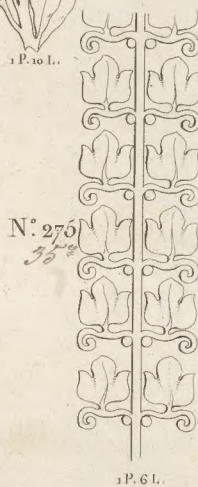 1 P. 10 L.
N.º 275
1 P. 6 L.